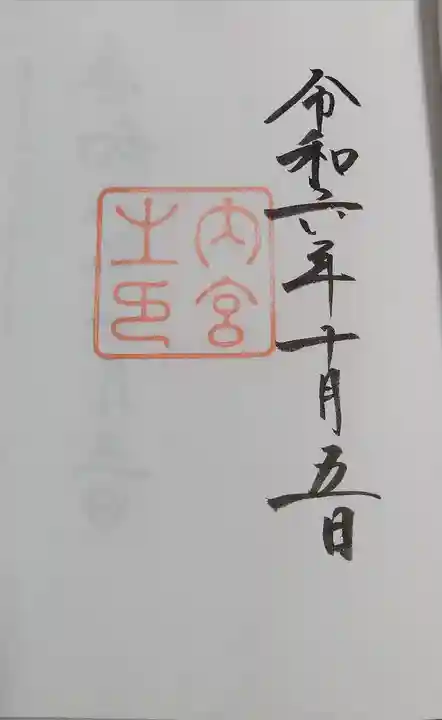 令和六年十月五日
内宮
之印